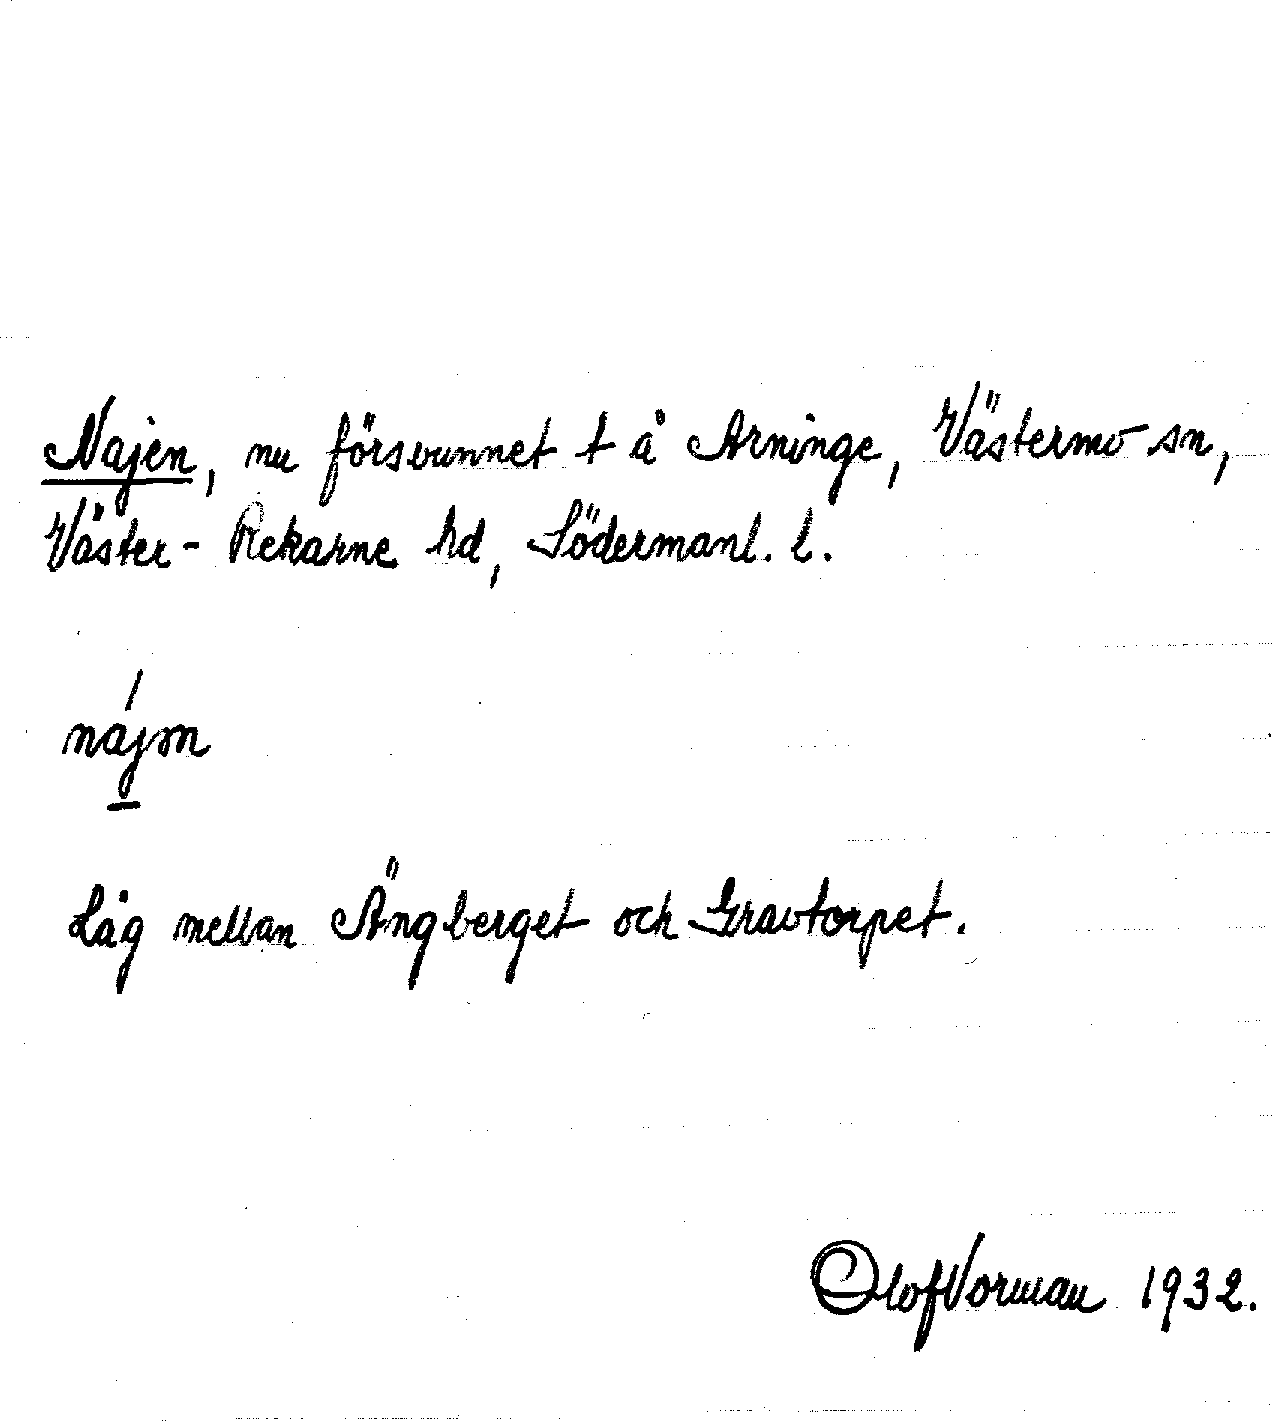 Najen, nu försvunnet t å Arninge, Västermo sn,
Väster-Rekarne hd, Södermanl. l.
Låg mellan Ängberget och Gravtorpet.
Olof Vorman 1932.